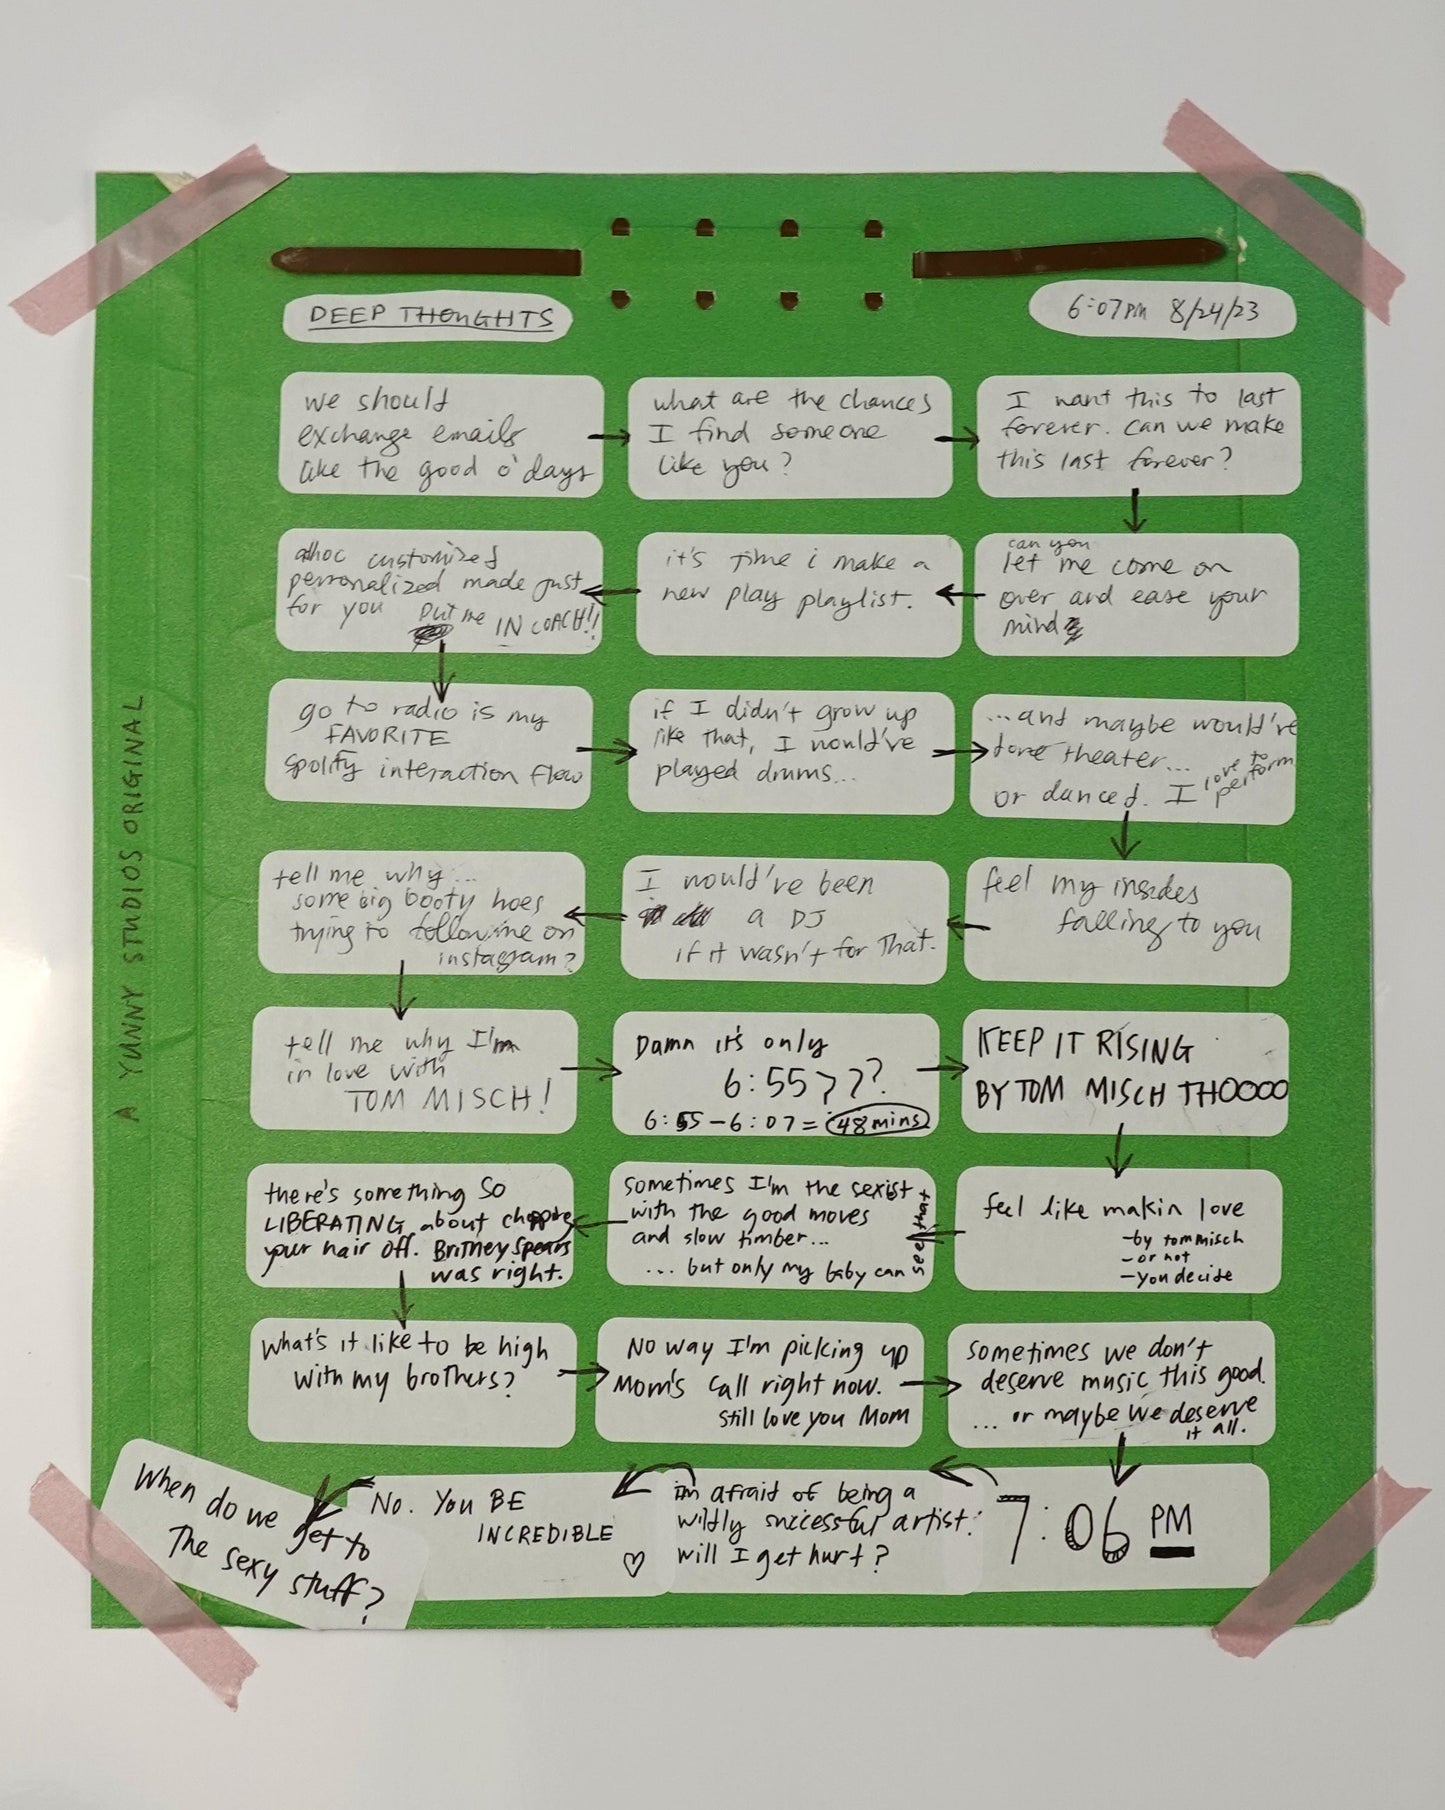 DEEP THOUGHTS
6:07PM 8/24/23
we should
exchange emails
like the good o' days
what are the chances
I find someone
like you?
I want this to last
forever. can we make
this last forever?
can you
let me come on
over and ease your
mind
it's time i make a
new play playlist.
adhoc customized
personalized made just
for you put me IN COACH!!
go to radio is my
FAVORITE
spotify interaction flow
if I didn't grow up
like that, I would've
played drums...
...and maybe would've
done theater...
or danced. I love to
perform
feel my insides
falling to you
I would've been
a DJ
if it wasn't for that.
tell me why...
some big booty hoes
trying to follow me on
instagram?
tell me why I'm
in love with
TOM MISCH!
Damn it's only
6:55???
6:55-6:07=48mins
KEEP IT RISING
BY TOM MISCH THOOOO
feel like makin love
-by tom misch
-or not
-you decide
sometimes I'm the sexist
with the good moves
and slow timber...
... but only my baby can
see that
there's something SO
LIBERATING about chopping
your hair off. Britney Spears
was right.
What's it like to be high
with my brothers?
No way I'm picking up
Mom's call right now.
still love you Mom
sometimes we don't
deserve music this good.
... or maybe we deserve
it all.
7:06 PM
i'm afraid of being a
wildly successful artist.
will I get hurt?
No. YOU BE
INCREDIBLE
♡
When do we
get to
The sexy stuff?
A YUNNY STUDIOS ORIGINAL